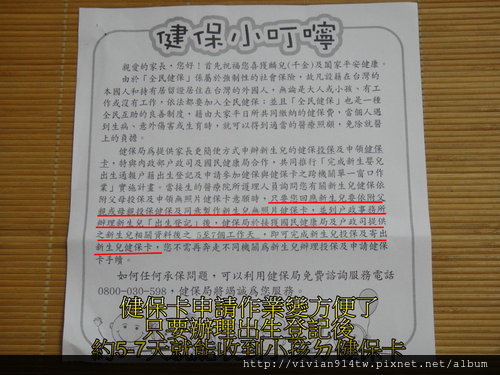 健保小叮嚀
親愛的家長，您好！首先祝福您喜獲麟兒(千金)及闔家平安健康。
由於「全民健保」係屬於強制性的社會保險，故凡設籍在台灣的
本國人和持有居留證居住在台灣的外國人，無論是大人或小孩、有工
作或沒有工作，依法都要加入全民健保；並且「全民健保」也是一種
全民互助的良善制度，藉由大家平日所共同繳納的健保費，當個人遇
到生病、意外傷害或生育時，就可以得到適當的醫療照顧，免除就醫
上的負擔。
健保局為提供家長更簡便方式申辦新生兒的健保投保及申領健保
卡，特與內政部戶政司及國民健康局合作，共同推行「完成新生嬰兒
出生通報戶籍出生登記及申請參加健保與健保卡之跨機關單一窗口作
業」實施計畫。當接生的醫療院所護理人員詢問您有關新生兒健保依
附父母投保及申領無照片健保卡意願時，只要您回應新生兒要依附父
親或母親投保健保及同意製作新生兒無照片健保卡，並到戶政事務所
辦理新生兒「出生登記」後，健保局於接獲國民健康局及戶政司提供
之新生兒相關資料後之5至7個工作天，即可完成新生兒投保及寄出
新生兒健保卡，您不需再奔走不同機關為新生兒辦理投保及申請健保
卡手續。
如何任何承保問題，可以利用健保局免費諮詢服務電話
0800-030-598，健保局將竭誠為您服務。
健保卡申請作業變方便了
只要辦理出生登記後
約5-7天就能收到小孩ㄉ健保卡
http://vivian914tw.pixnet.net/album